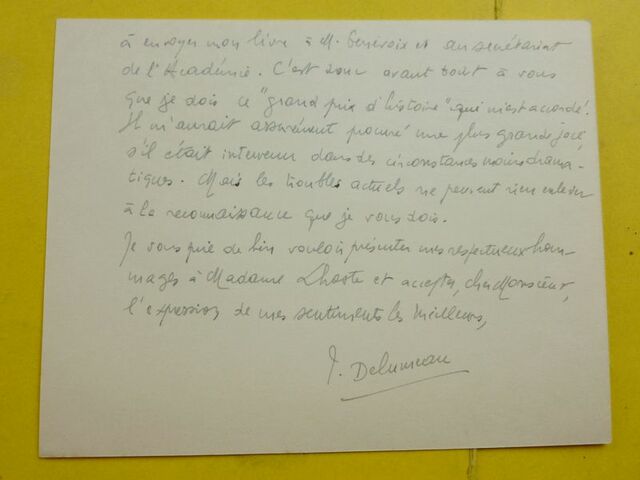 à envoyer mon livre à M. Genevoix et au secrétariat
de l'Académie. C'est donc avant tout à vous
que je dois ce "grand prix d'histoire" qui m'est accordé.
Il m'aurait assurément procuré une plus grande joie,
s'il était intervenu dans des circonstances moins drama-
tiques. Mais les troubles actuels ne peuvent rien enlever
à la reconnaissance que je vous dois.
Je vous prie de bien vouloir présenter mes respectueux hom-
mages à Madame Lhoste et accepter, cher Monsieur,
l'expression de mes sentiments les meilleurs,
J. Delumeau